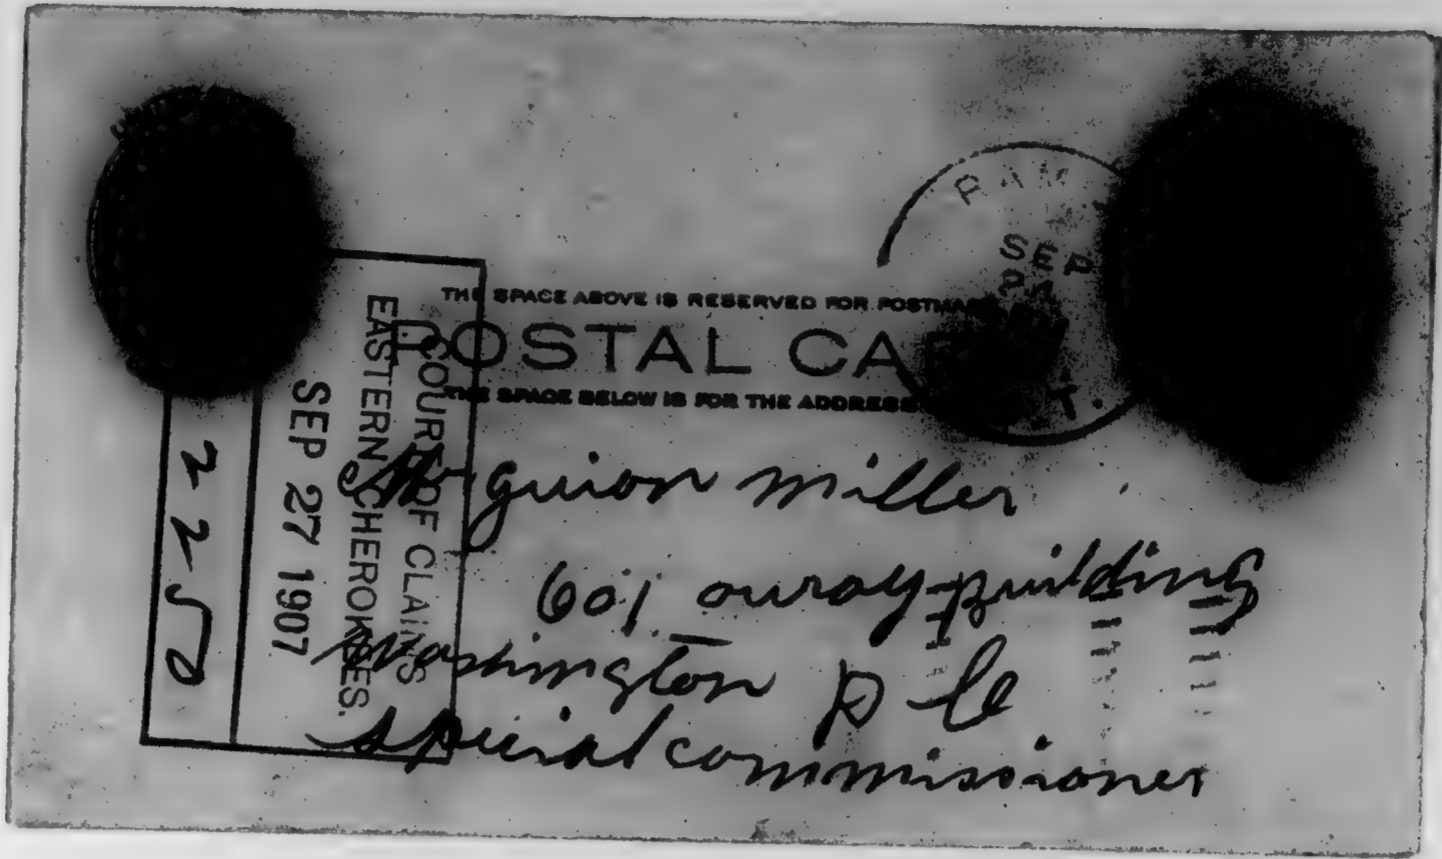 RAM
SEP
24
THE SPACE ABOVE IS RESERVED FOR POSTMARK
POSTAL CA
THE SPACE BELOW IS FOR THE ADDRESS
T.
COURT OF CLAIMS
EASTERN CHEROKEES.
SEP 27 1907
2250
guion miller
601 ouray building
Washington D C
special commissioner